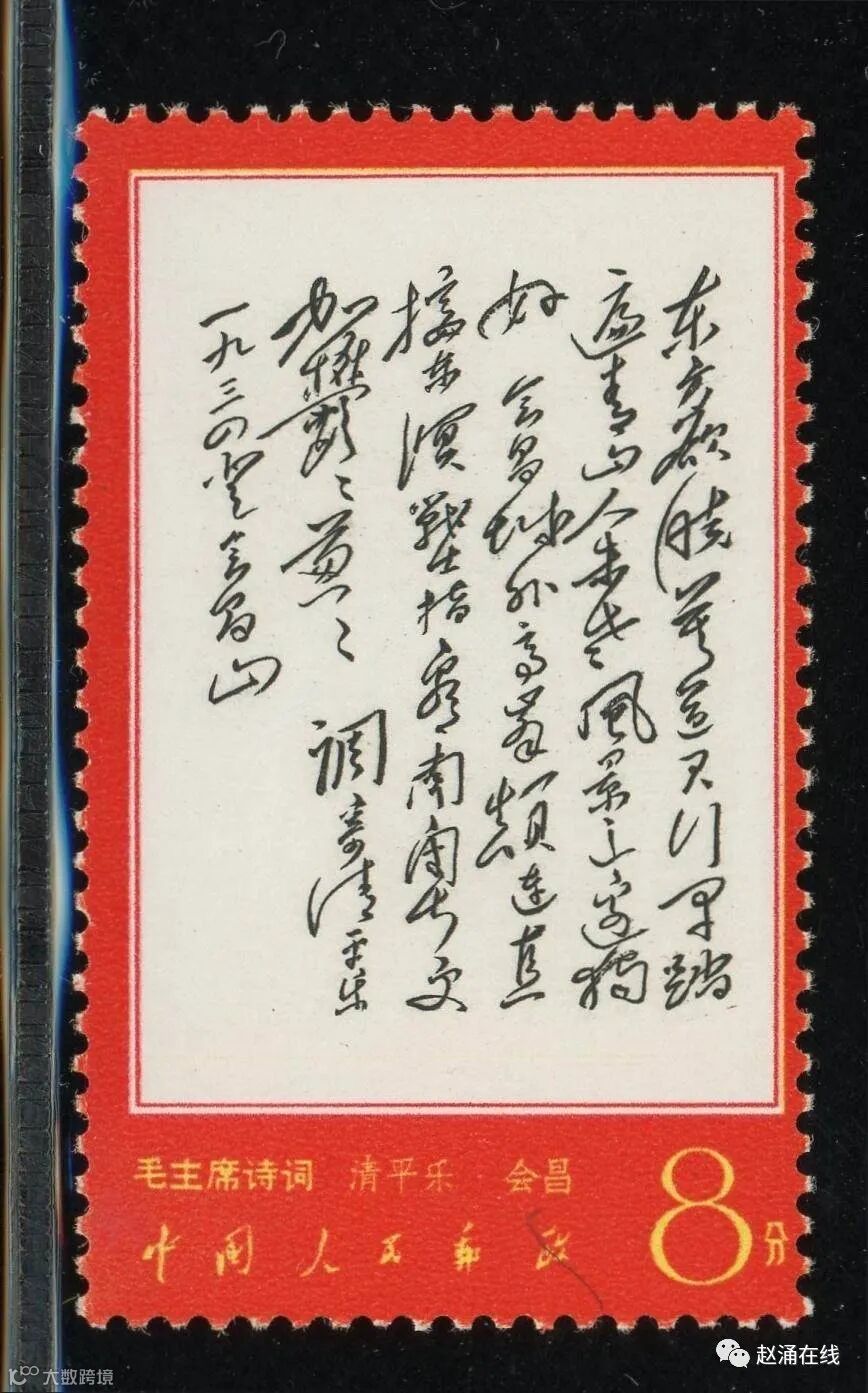 东方欲晓莫道君行早踏
遍青山人未老風景这边獨
好 会昌城外高峯颠连直
接东溟戰士指看南粤更
加鬱〻葱〻 调寄清平乐
一九三四登会昌山
毛主席诗词 清平乐 会昌
8分
中国人民邮政
赵涌在线
大数跨境